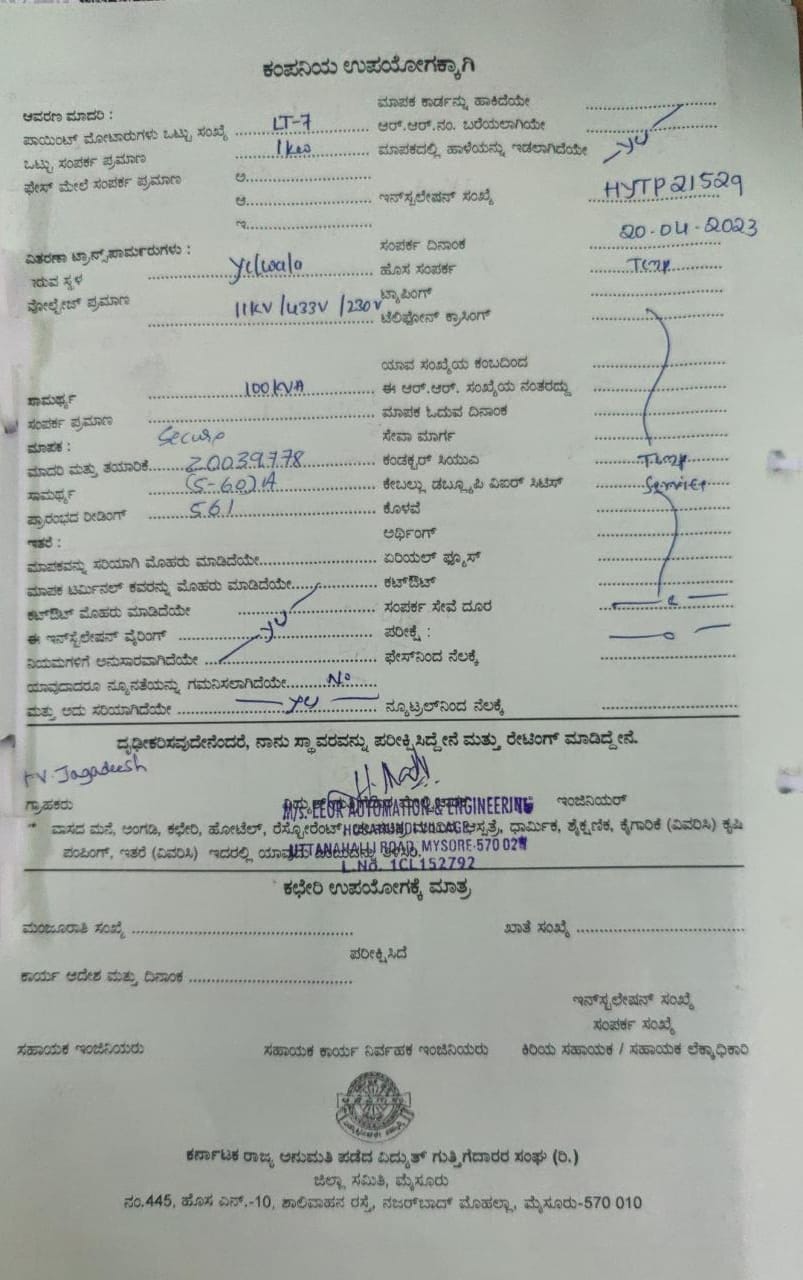 ಕಂಪನಿಯ ಉಪಯೋಗಕ್ಕಾಗಿ
ಆವರಣ ಮಾದರಿ : ಮಾಪಕ ಕಾರ್ಡನ್ನು ಹಾಕಿದೆಯೇ
ಪಾಯಿಂಟ್ ಮೋಟಾರುಗಳು ಒಟ್ಟು ಸಂಖ್ಯೆ LT-7 ಆರ್.ಆರ್.ನಂ. ಬರೆಯಲಾಗಿಯೇ
ಒಟ್ಟು ಸಂಪರ್ಕ ಪ್ರಮಾಣ ಮಾಪಕದಲ್ಲಿ ಹಾಳೆಯನ್ನು ಇಡಲಾಗಿದೆಯೇ
ಫೇಸ್ ಮೇಲೆ ಸಂಪರ್ಕ ಪ್ರಮಾಣ ಅ.
ಆ. ಇನ್‌ಸ್ಟಲೇಷನ್ ಸಂಖ್ಯೆ HYTP21529
ಇ.
ವಿತರಣಾ ಟ್ರಾನ್ಸ್‌ಫಾರ್ಮರುಗಳು : ಸಂಪರ್ಕ ದಿನಾಂಕ 20-04-2023
ಇರುವ ಸ್ಥಳ Yelwala ಹೊಸ ಸಂಪರ್ಕ Temp
ವೋಲ್ಟೇಜ್ ಪ್ರಮಾಣ 11KV/433V/230V ಟ್ಯಾಪಿಂಗ್
ಟೆಲಿಫೋನ್ ಕ್ರಾಸಿಂಗ್
ಯಾವ ಸಂಖ್ಯೆಯ ಕಂಬದಿಂದ
ಸಾಮರ್ಥ್ಯ 100KVA ಈ ಆರ್.ಆರ್. ಸಂಖ್ಯೆಯ ನಂತರದ್ದು
ಸಂಪರ್ಕ ಪ್ರಮಾಣ ಮಾಪಕ ಓದುವ ದಿನಾಂಕ
ಮಾಪಕ : Secure ಸೇವಾ ಮಾರ್ಗ
ಮಾದರಿ ಮತ್ತು ತಯಾರಿಕೆ 20039778 ಕಂಡಕ್ಟರ್ ಸಿಯುವಿ Temp
ಸಾಮರ್ಥ್ಯ (5-60)A ಕೇಬಲ್ಲು ಡಬ್ಲ್ಯೂಪಿ ವಿಐರ್ ಸಿಟಿಸ್ Service
ಪ್ರಾರಂಭದ ರೀಡಿಂಗ್ 561 ಕೊಳವೆ
ಇತರೆ : ಅರ್ಥಿಂಗ್
ಮಾಪಕವನ್ನು ಸರಿಯಾಗಿ ಮೊಹರು ಮಾಡಿದೆಯೇ ಏರಿಯಲ್ ಫ್ಯೂಸ್
ಮಾಪಕ ಟರ್ಮಿನಲ್ ಕವರನ್ನು ಮೊಹರು ಮಾಡಿದೆಯೇ ಕಟ್‌ಔಟ್
ಕಟ್‌ಔಟ್ ಮೊಹರು ಮಾಡಿದೆಯೇ ಸಂಪರ್ಕ ಸೇವೆ ದೂರ
ಈ ಇನ್‌ಸ್ಟಲೇಷನ್ ವೈರಿಂಗ್ ಪರೀಕ್ಷೆ :
ನಿಯಮಗಳಿಗೆ ಅನುಸಾರವಾಗಿದೆಯೇ ಫೇಸ್‌ನಿಂದ ನೆಲಕ್ಕೆ
ಯಾವುದಾದರೂ ನ್ಯೂನತೆಯನ್ನು ಗಮನಿಸಲಾಗಿದೆಯೇ No
ಮತ್ತು ಅದು ಸರಿಯಾಗಿದೆಯೇ ನ್ಯೂಟ್ರಲ್‌ನಿಂದ ನೆಲಕ್ಕೆ
ದೃಢೀಕರಿಸವುದೇನೆಂದರೆ, ನಾನು ಸ್ಥಾವರವನ್ನು ಪರೀಕ್ಷಿಸಿದ್ದೇನೆ ಮತ್ತು ರೇಟಿಂಗ್ ಮಾಡಿದ್ದೇನೆ.
Jagadeesh
ಗ್ರಾಹಕರು AUTOMATION & ENGINEERING ಇಂಜಿನಿಯರ್
* ವಾಸದ ಮನೆ, ಅಂಗಡಿ, ಕಛೇರಿ, ಹೋಟೆಲ್, ರೆಸ್ಟೋರೆಂಟ್, VILLAGE ಆಸ್ಪತ್ರೆ, ಧಾರ್ಮಿಕ, ಶೈಕ್ಷಣಿಕ, ಕೈಗಾರಿಕೆ (ವಿವರಿಸಿ) ಕೃಷಿ
ಪಂಪಿಂಗ್, ಇತರೆ (ವಿವರಿಸಿ) ಇದರಲ್ಲಿ ROAD, MYSORE-570 02
L.No. 1CL152792
ಕಛೇರಿ ಉಪಯೋಗಕ್ಕೆ ಮಾತ್ರ
ಮಂಜೂರಾತಿ ಸಂಖ್ಯೆ ಖಾತೆ ಸಂಖ್ಯೆ
ಪರೀಕ್ಷಿಸಿದೆ
ಕಾರ್ಯ ಆದೇಶ ಮತ್ತು ದಿನಾಂಕ
ಇನ್‌ಸ್ಟಲೇಷನ್ ಸಂಖ್ಯೆ
ಸಂಪರ್ಕ ಸಂಖ್ಯೆ
ಸಹಾಯಕ ಇಂಜಿನಿಯರು ಸಹಾಯಕ ಕಾರ್ಯ ನಿರ್ವಹಕ ಇಂಜಿನಿಯರು ಕಿರಿಯ ಸಹಾಯಕ / ಸಹಾಯಕ ಲೆಕ್ಕಾಧಿಕಾರಿ
ಕರ್ನಾಟಕ ರಾಜ್ಯ ಅನುಮತಿ ಪಡೆದ ವಿದ್ಯುತ್ ಗುತ್ತಿಗೆದಾರರ ಸಂಘ (ರಿ.)
ಜಿಲ್ಲಾ ಸಮಿತಿ, ಮೈಸೂರು
ನಂ.445, ಹೊಸ ಎನ್.-10, ಶಾಲಿವಾಹನ ರಸ್ತೆ, ನಜರ್‌ಬಾದ್ ಮೊಹಲ್ಲಾ, ಮೈಸೂರು-570 010